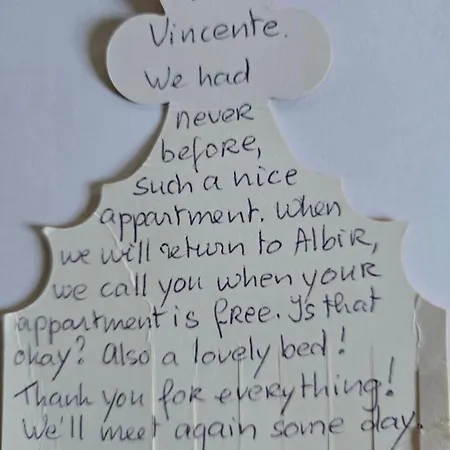 Vincente.
We had
never
before,
such a nice
appartment. When
we will return to Albir,
we call you when your
appartment is free. Is that
okay? Also a lovely bed!
Thank you for everything!
We'll meet again some day.